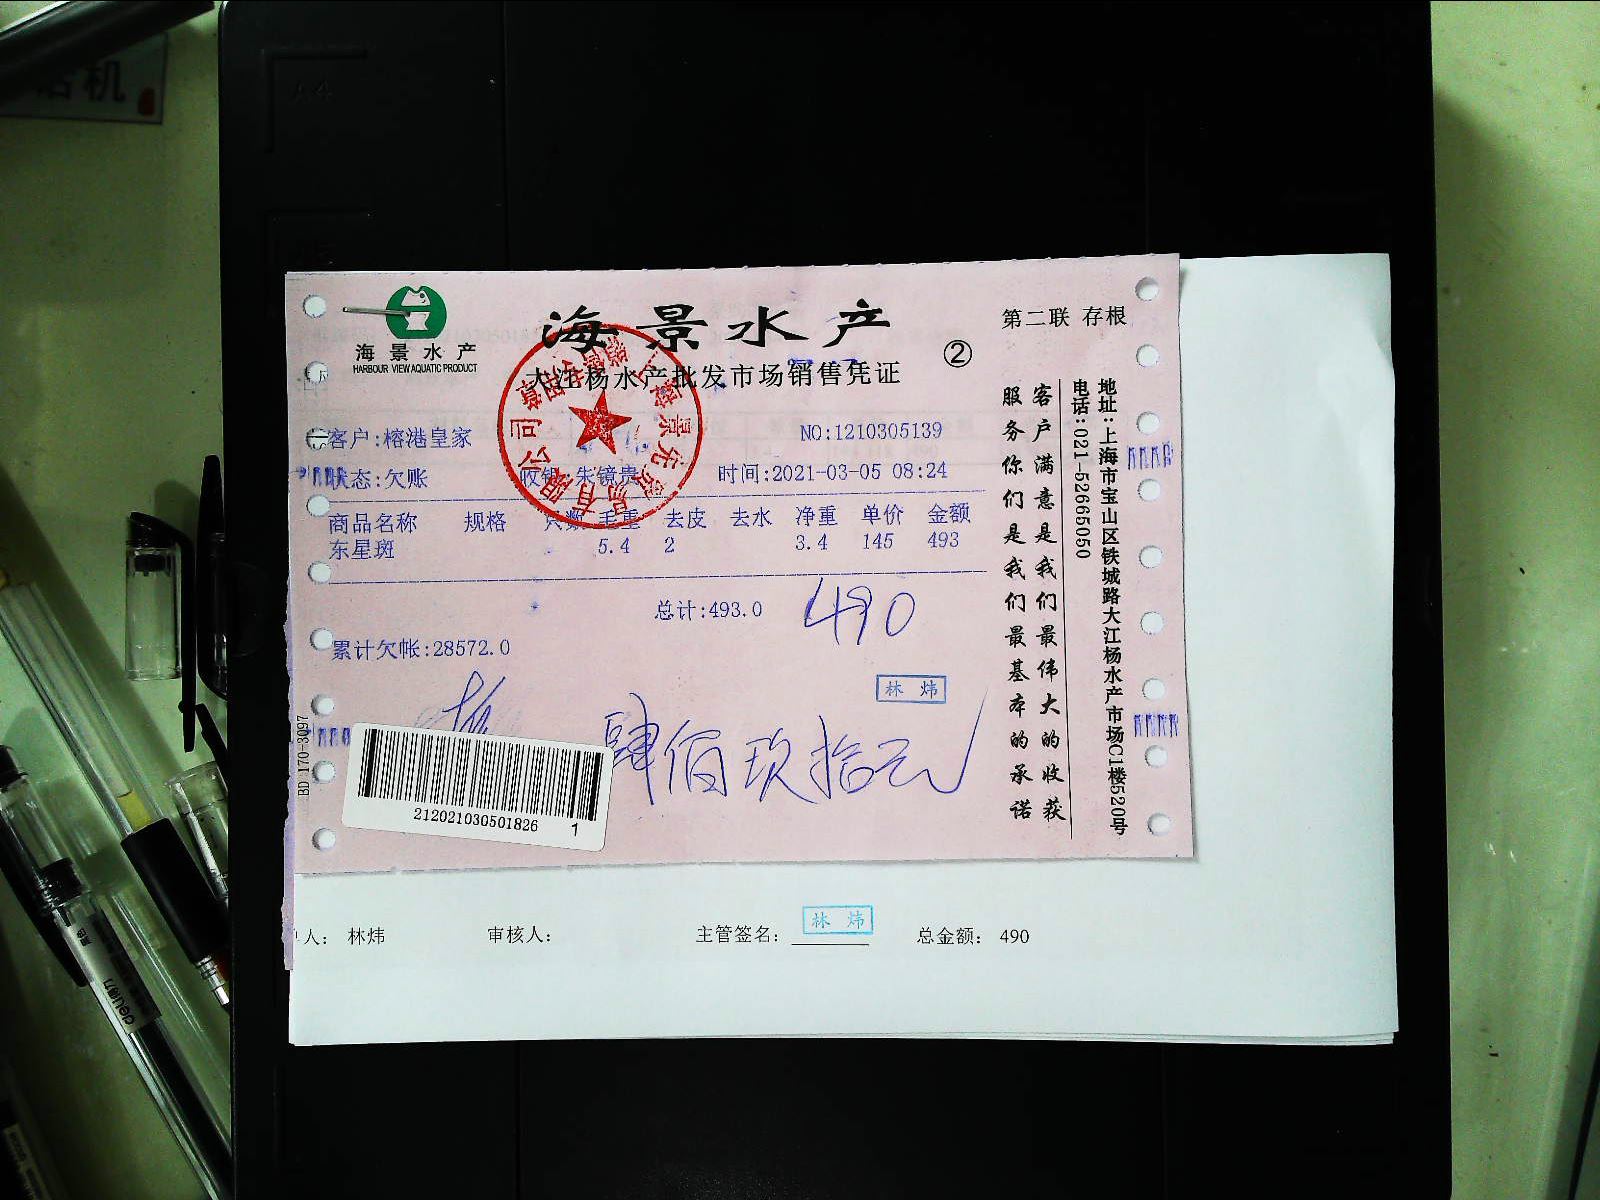 海景水产
HARBOUR VIEW AQUATIC PRODUCT
海景水产
大江杨水产批发市场销售凭证
②
第二联 存根
客户:榕港皇家
NO:1210305139
状态:欠账
收银:朱镜贵
时间:2021-03-05 08:24
商品名称 规格 只数 毛重 去皮 去水 净重 单价 金额
东星斑 5.4 2 3.4 145 493
总计:493.0
490
累计欠帐:28572.0
林炜
肆佰玖拾元
212021030501826
1
客户满意是我们最伟大的收获
服务你们是我们最基本的承诺
地址:上海市宝山区铁城路大江杨水产市场C1楼520号
电话:021-52665050
人: 林炜
审核人:
主管签名:
林炜
总金额: 490
deli得力